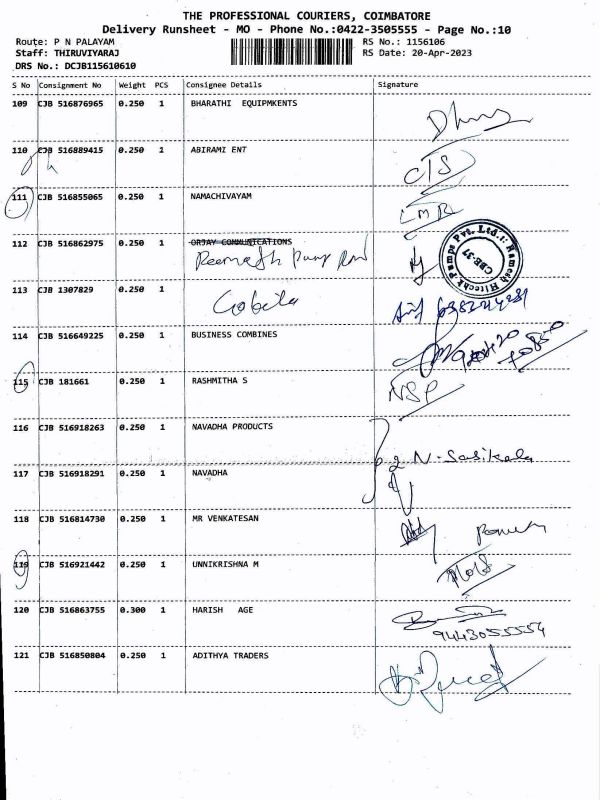 THE PROFESSIONAL COURIERS, COIMBATORE
Delivery Runsheet - MO - Phone No.:0422-3505555 - Page No.:10
Route: P N PALAYAM RS No.: 1156106
Staff: THIRUVIYARAJ RS Date: 20-Apr-2023
DRS No.: DCJB115610610
S No Consignment No Weight PCS Consignee Details Signature
109 CJB 516876965 0.250 1 BHARATHI EQUIPMKENTS
110 CJB 516889415 0.250 1 ABIRAMI ENT
111 CJB 516855065 0.250 1 NAMACHIVAYAM
112 CJB 516862975 0.250 1 ORJAY COMMUNICATIONS
113 CJB 1307829 0.250 1
114 CJB 516649225 0.250 1 BUSINESS COMBINES
115 CJB 181661 0.250 1 RASHMITHA S
NSP
116 CJB 516918263 0.250 1 NAVADHA PRODUCTS
N. Sasikala
117 CJB 516918291 0.250 1 NAVADHA
118 CJB 516814730 0.250 1 MR VENKATESAN
119 CJB 516921442 0.250 1 UNNIKRISHNA M
120 CJB 516863755 0.300 1 HARISH AGE
9443055554
121 CJB 516850804 0.250 1 ADITHYA TRADERS